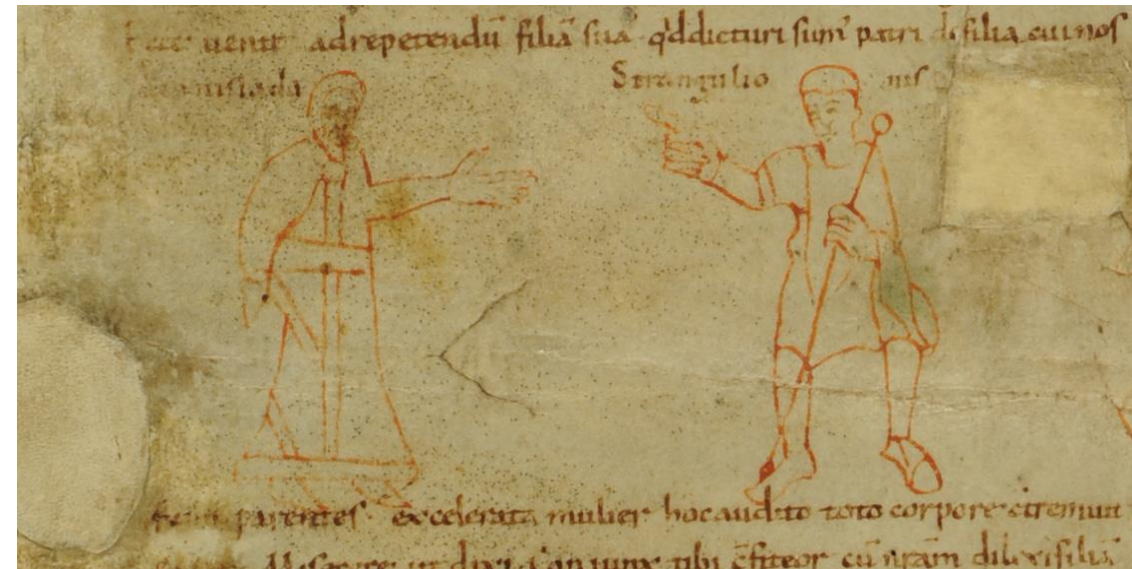 uenit ad repetendū filiā suā qd dicturi sum' patri de filia cui nos
Strangulio nis
parentes. excelerata mulier hoc audito toto corpore
ut dixi coniunx tibi c̄fiteor cū nr̄am dilexi filiā